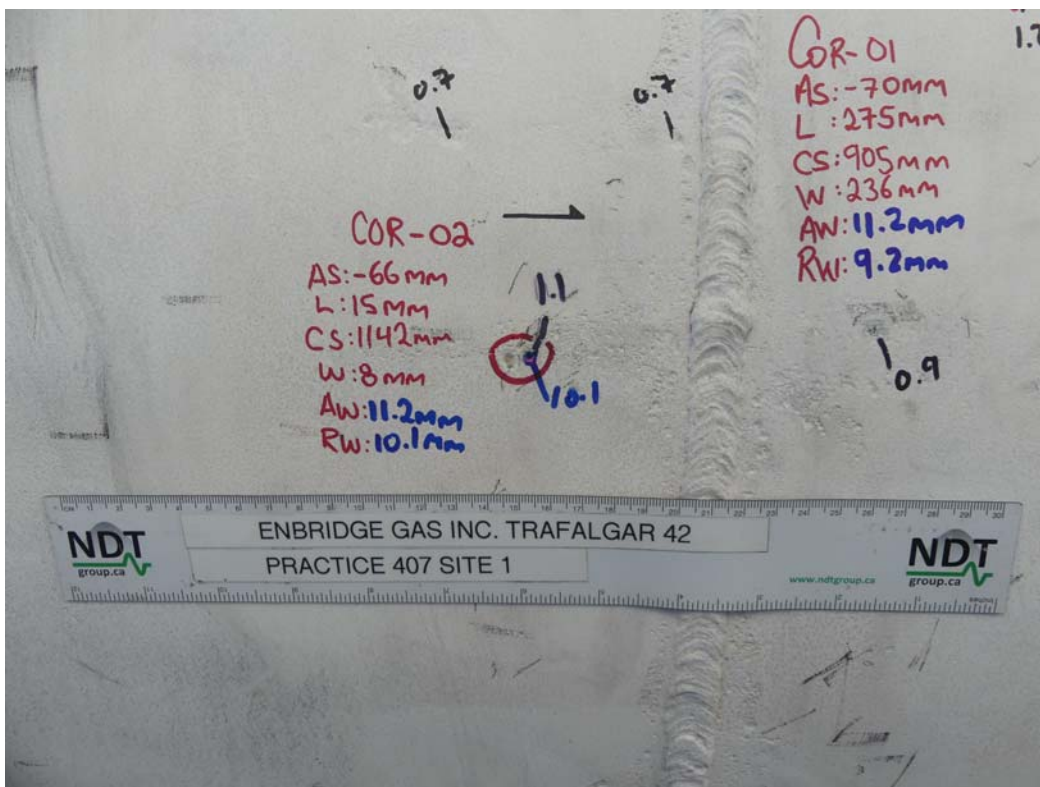 COR-01
AS:-70mm
L:275mm
CS:905mm
W:236mm
AW:11.2mm
RW:9.2mm
1.7
0.7
0.7
COR-02
AS:-66mm
L:15mm
CS:1142mm
W:8mm
AW:11.2mm
RW:10.1mm
1.1
10.1
0.9
NDT
group.ca
ENBRIDGE GAS INC. TRAFALGAR 42
PRACTICE 407 SITE 1
www.ndtgroup.ca
NDT
group.ca